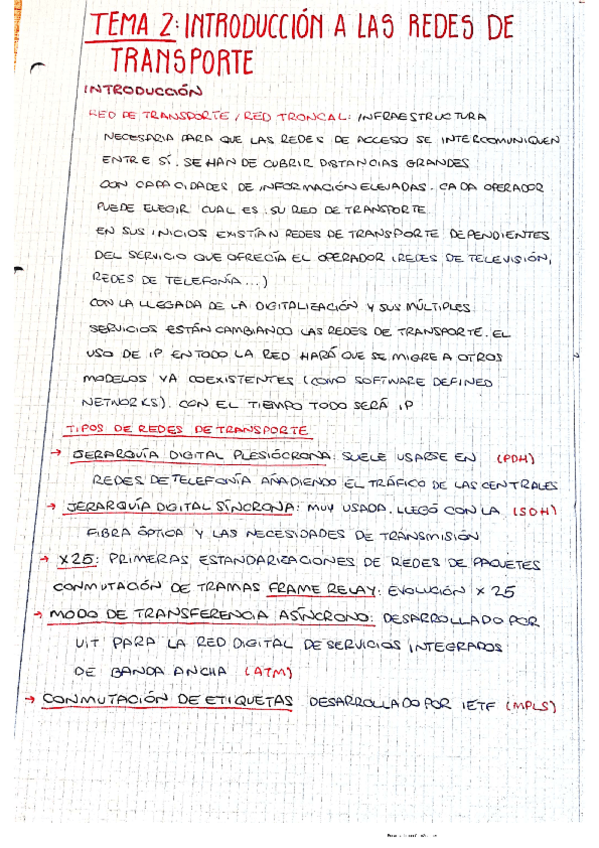 TEMA 2: INTRODUCCIÓN A LAS REDES DE
TRANSPORTE
INTRODUCCIÓN
RED DE TRANSPORTE / RED TRONCAL: INFRAESTRUCTURA
NECESARIA PARA QUE LAS REDES DE ACCESO SE INTERCOMUNIQUEN
ENTRE SÍ. SE HAN DE CUBRIR DISTANCIAS GRANDES
CON CAPACIDADES DE INFORMACIÓN ELEVADAS. CADA OPERADOR
PUEDE ELEGIR CUAL ES SU RED DE TRANSPORTE
EN SUS INICIOS EXISTÍAN REDES DE TRANSPORTE DEPENDIENTES
DEL SERVICIO QUE OFRECÍA EL OPERADOR (REDES DE TELEVISIÓN,
REDES DE TELEFONÍA...)
CON LA LLEGADA DE LA DIGITALIZACIÓN Y SUS MÚLTIPLES
SERVICIOS ESTÁN CAMBIANDO LAS REDES DE TRANSPORTE. EL
USO DE IP EN TODO LA RED HARÁ QUE SE MIGRE A OTROS
MODELOS YA COEXISTENTES (COMO SOFTWARE DEFINED
NETWORKS). CON EL TIEMPO TODO SERÁ IP
TIPOS DE REDES DE TRANSPORTE
→ JERARQUÍA DIGITAL PLESIÓCRONA: SUELE USARSE EN (PDH)
REDES DE TELEFONÍA AÑADIENDO EL TRÁFICO DE LAS CENTRALES
→ JERARQUÍA DIGITAL SÍNCRONA: MUY USADA. LLEGÓ CON LA (SDH)
FIBRA ÓPTICA Y LAS NECESIDADES DE TRANSMISIÓN
→ X25: PRIMERAS ESTANDARIZACIONES DE REDES DE PAQUETES
CONMUTACIÓN DE TRAMAS FRAME RELAY: EVOLUCIÓN X25
→ MODO DE TRANSFERENCIA ASÍNCRONO: DESARROLLADO POR
UIT PARA LA RED DIGITAL DE SERVICIOS INTEGRADOS
DE BANDA ANCHA (ATM)
→ CONMUTACIÓN DE ETIQUETAS DESARROLLADO POR IETF (MPLS)